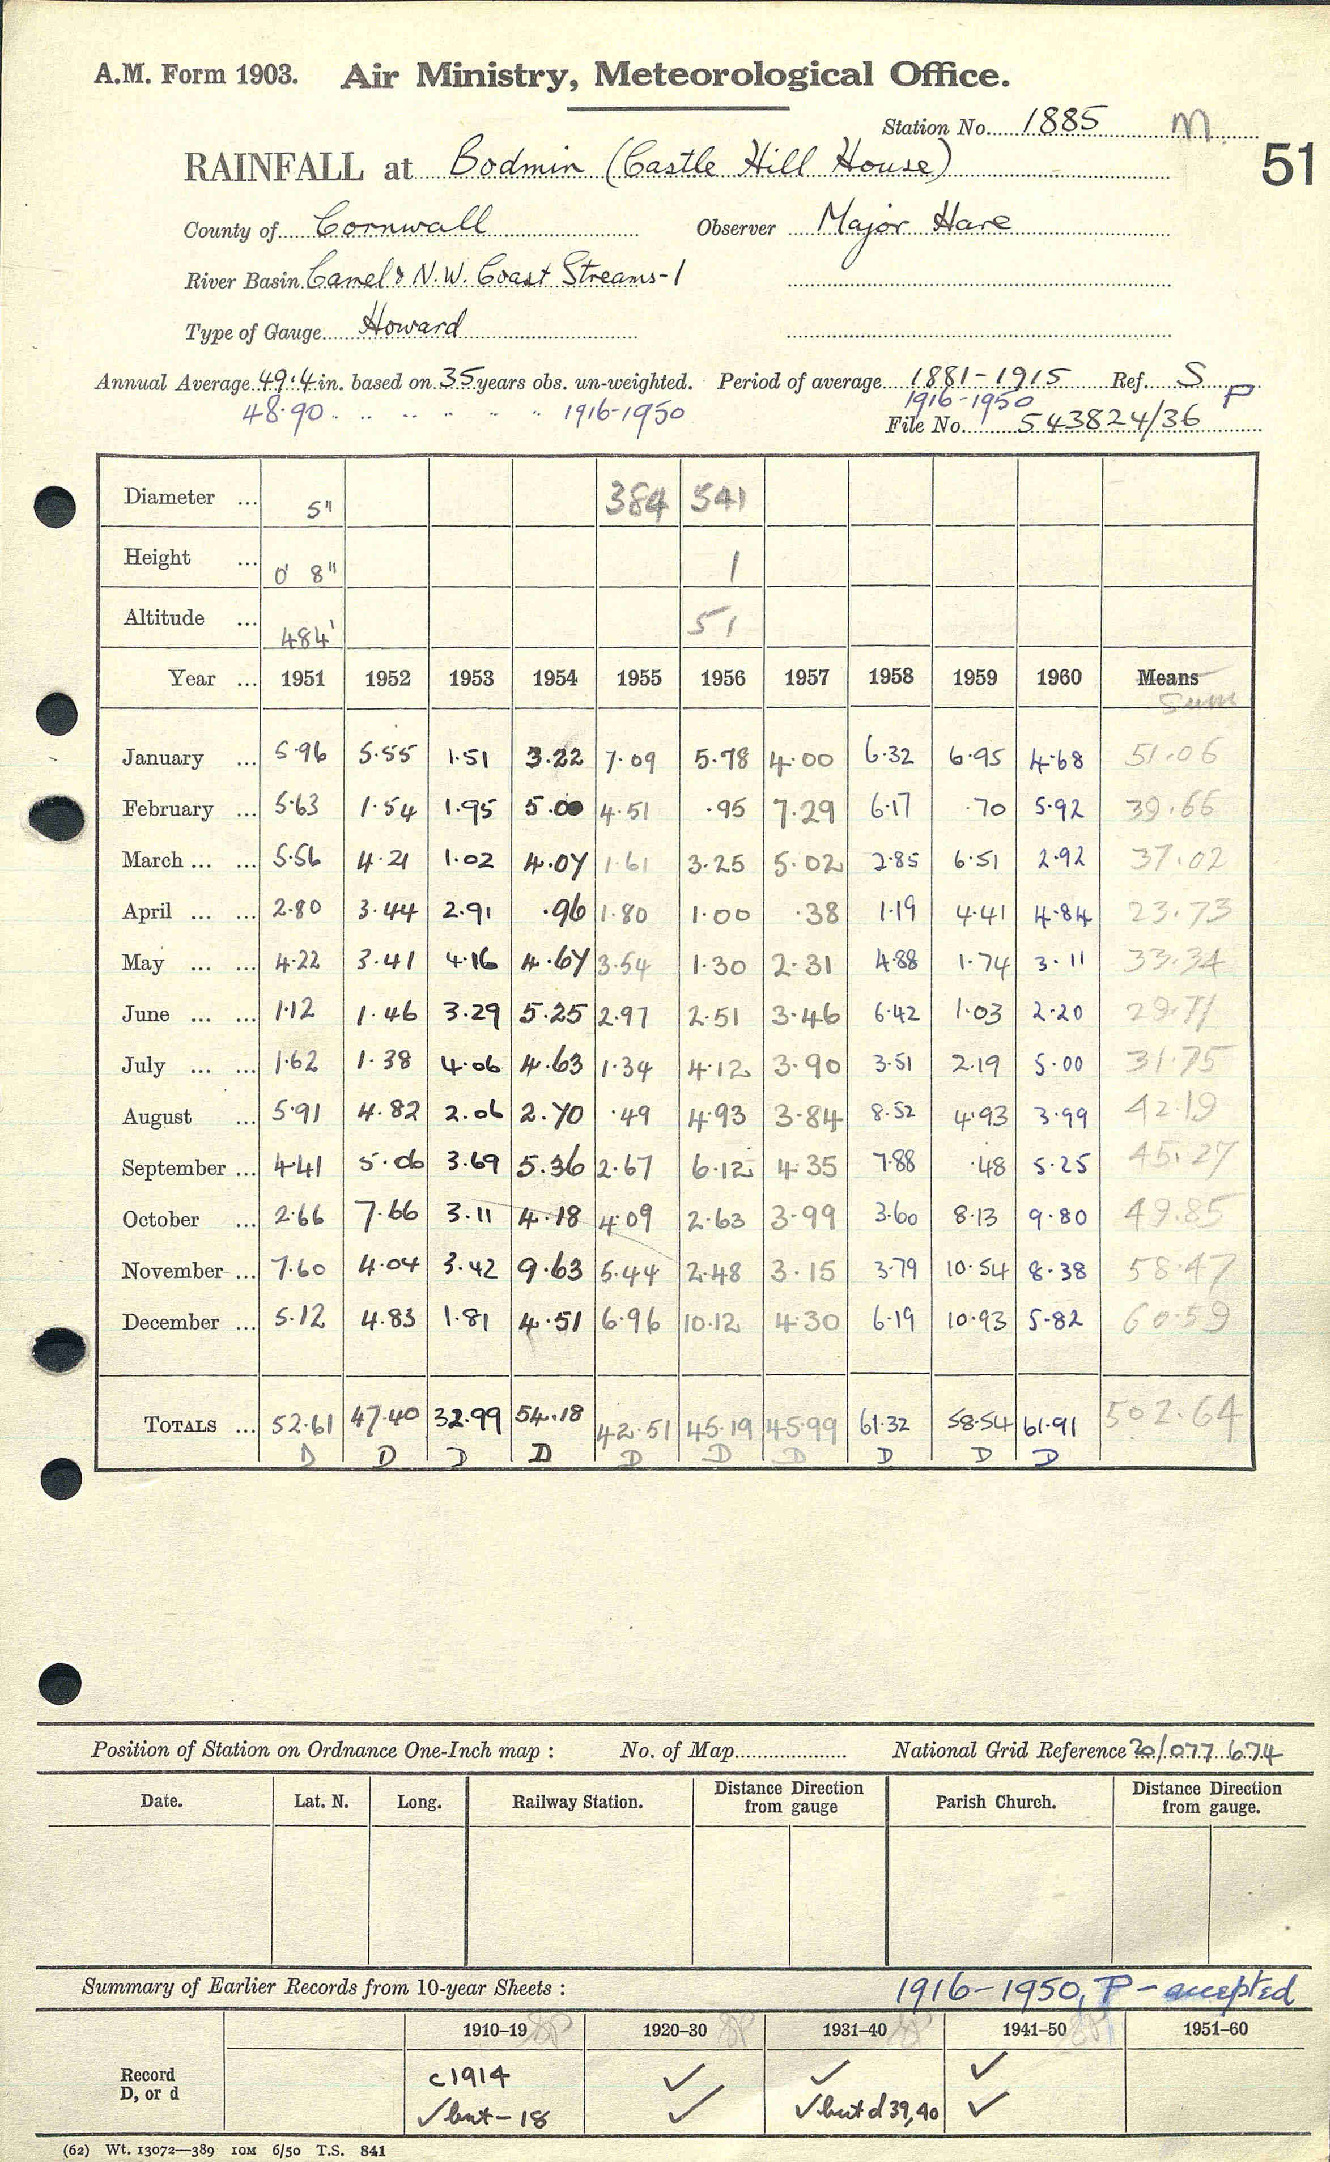 A.M. Form 1903. Air Ministry, Meteorological Office.
Station No. 1885 M.
51
RAINFALL at Bodmin (Castle Hill House)
County of Cornwall Observer Major Hare
River Basin Camel & N.W. Coast Streams-1
Type of Gauge Howard
Annual Average 49.4 in. based on 35 years obs. un-weighted. Period of average 1881-1915 Ref. S
48.90 1916-1950 1916-1950 P
File No. 543824/36
Diameter ... 5" 384 541
Height ... 0' 8" 1
Altitude ... 484' 51
Year ... 1951 1952 1953 1954 1955 1956 1957 1958 1959 1960 Means
Sum
January ... 5.96 5.55 1.51 3.22 7.09 5.78 4.00 6.32 6.95 4.68 51.06
February ... 5.63 1.54 1.95 5.00 4.51 .95 7.29 6.17 .70 5.92 39.66
March ... ... 5.56 4.21 1.02 4.07 1.61 3.25 5.02 2.85 6.51 2.92 37.02
April ... ... 2.80 3.44 2.91 .96 1.80 1.00 .38 1.19 4.41 4.84 23.73
May ... ... 4.22 3.41 4.16 4.67 3.54 1.30 2.31 4.88 1.74 3.11 33.34
June ... ... 1.12 1.46 3.29 5.25 2.97 2.51 3.46 6.42 1.03 2.20 29.71
July ... ... 1.62 1.38 4.06 4.63 1.34 4.12 3.90 3.51 2.19 5.00 31.75
August ... 5.91 4.82 2.06 2.70 .49 4.93 3.84 8.52 4.93 3.99 42.19
September ... 4.41 5.06 3.69 5.36 2.67 6.12 4.35 7.88 .48 5.25 45.27
October ... 2.66 7.66 3.11 4.18 4.09 2.63 3.99 3.60 8.13 9.80 49.85
November ... 7.60 4.04 3.42 9.63 5.44 2.48 3.15 3.79 10.54 8.38 58.47
December ... 5.12 4.83 1.81 4.51 6.96 10.12 4.30 6.19 10.93 5.82 60.59
TOTALS ... 52.61 47.40 32.99 54.18 42.51 45.19 45.99 61.32 58.54 61.91 502.64
D D D D D D D D D D
Position of Station on Ordnance One-Inch map : No. of Map National Grid Reference 20/077 674
Date. Lat. N. Long. Railway Station. Distance Direction from gauge Parish Church. Distance Direction from gauge.
Summary of Earlier Records from 10-year Sheets : 1916-1950, P - accepted
1910-19 1920-30 1931-40 1941-50 1951-60
Record c1914 ✓ ✓ ✓
D, or d ✓ but - 18 ✓ ✓ but d 39,40 ✓
(62) Wt. 13072—389 10M 6/50 T.S. 841